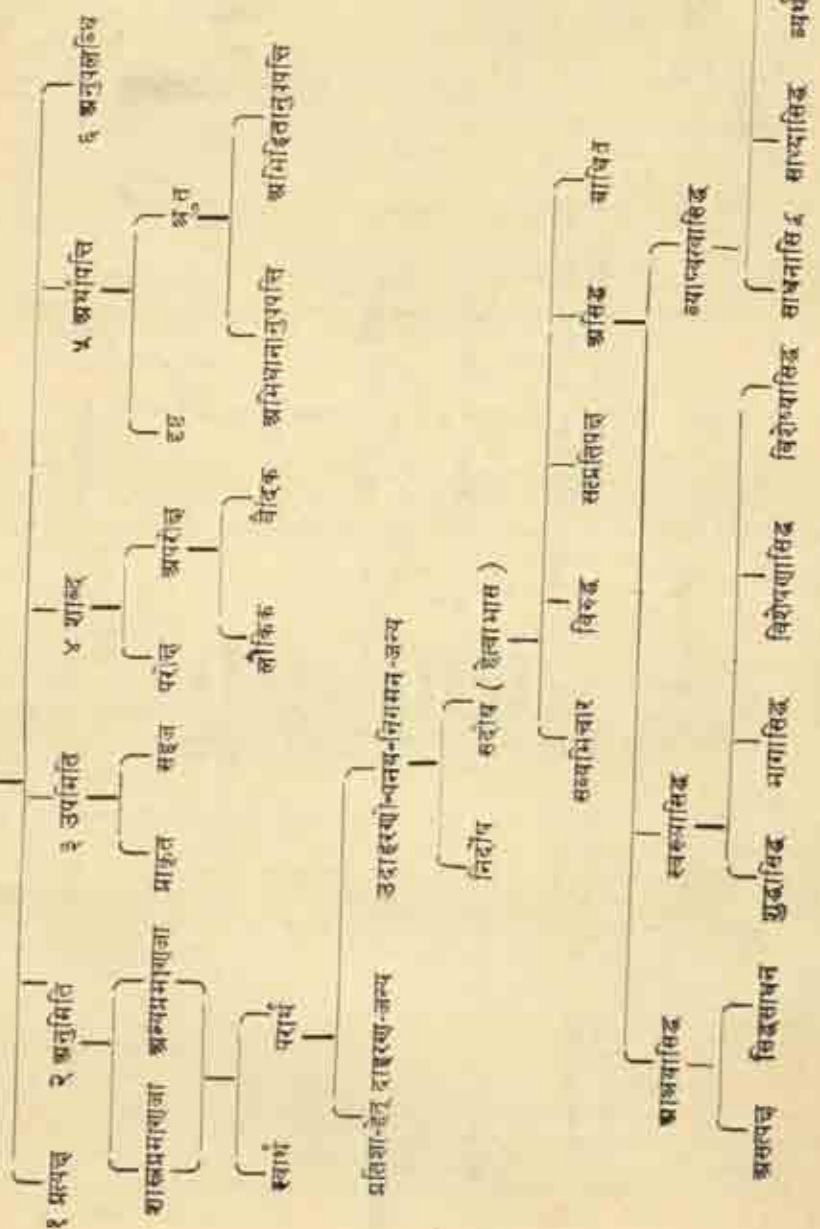 १ प्रत्यक्ष २ अनुमिति ३ उपमिति ४ शाब्द ५ अर्थापत्ति ६ अनुपलब्धि
शास्त्रप्रमाणजा अन्यप्रमाणजा प्राकृत सहज परोक्ष अपरोक्ष दृष्ट श्रुत
स्वार्थ परार्थ लौकिक वैदिक अभिधानानुपपत्ति अभिहितानुपपत्ति
प्रतिज्ञा-हेतू दाहरण-जन्य उदाहरणो-पनय-निगमन-जन्य
निर्दोष सदोष ( हेत्वाभास )
सव्यभिचार विरुद्ध सत्प्रतिपक्ष असिद्ध बाधित
आश्रयासिद्ध स्वरूपासिद्ध व्याप्यत्वासिद्ध
असत्पक्ष सिद्धसाधन शुद्धासिद्ध भागासिद्ध विशेषणासिद्ध विशेष्यासिद्ध साधनासिद्ध साध्यासिद्ध